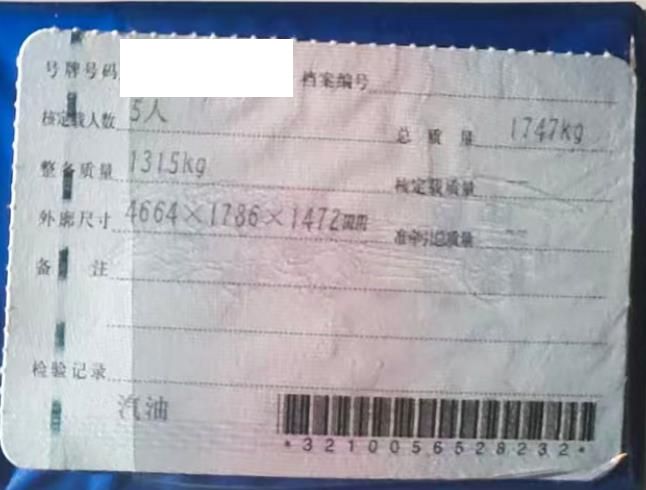 号牌号码 档案编号
核定载人数 5人 总质量 1747kg
整备质量 1315kg 核定载质量 --
外廓尺寸 4664×1786×1472mm 准牵引总质量 --
备注
检验记录
汽油
*3210056528232*